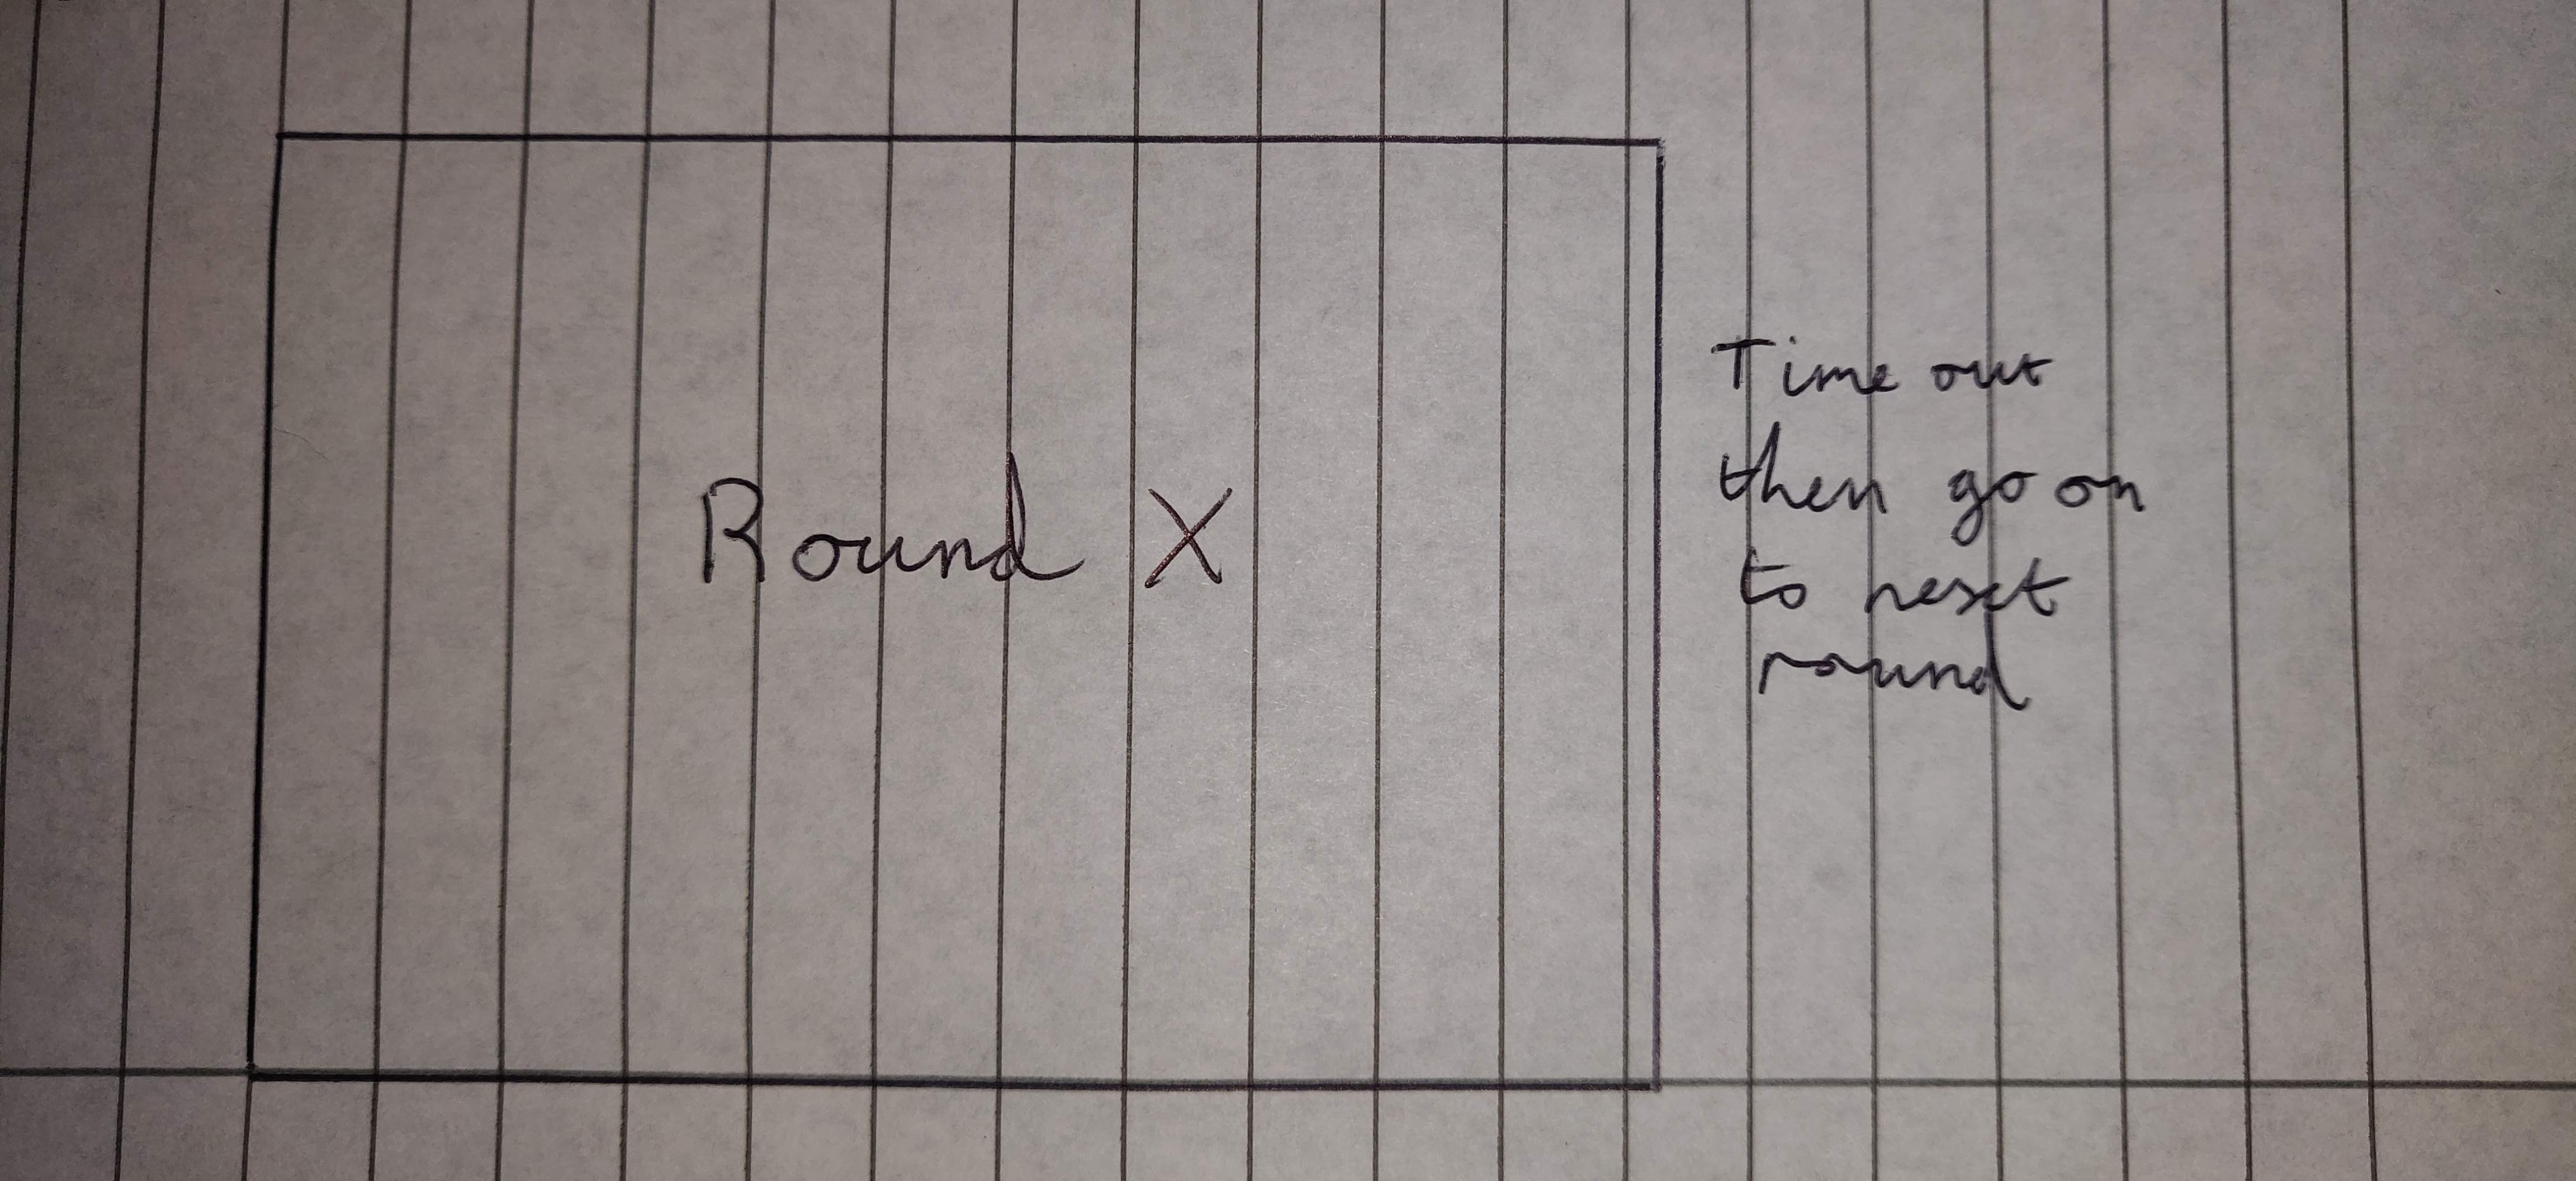 Round X
Time out
then go on
to reset
round